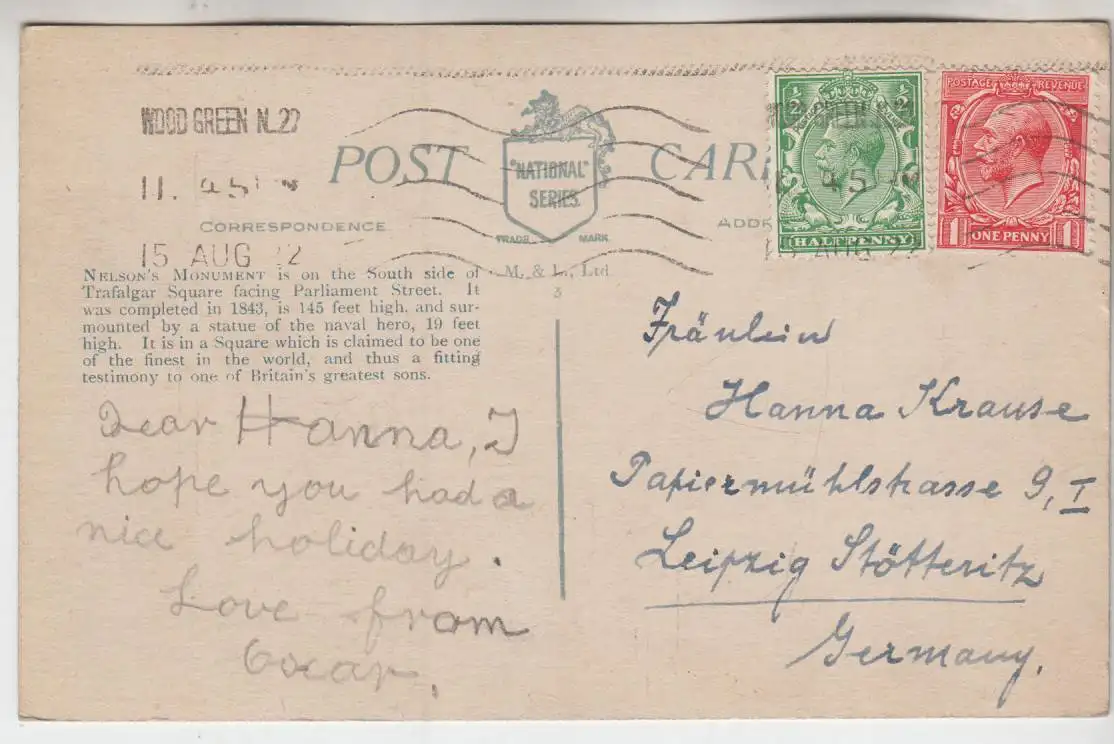 WOOD GREEN N.22
11. 45
15 AUG 22
POST CAR
"NATIONAL"
SERIES.
TRADE MARK
CORRESPONDENCE
ADD
M. & L., Ltd
3
NELSON'S MONUMENT is on the South side of
Trafalgar Square facing Parliament Street. It
was completed in 1843, is 145 feet high, and sur-
mounted by a statue of the naval hero, 19 feet
high. It is in a Square which is claimed to be one
of the finest in the world, and thus a fitting
testimony to one of Britain's greatest sons.
Dear Hanna, I
hope you had a
nice holiday.
Love from
Oscar.
½ ½
HALFPENNY
POSTAGE REVENUE
1 ONE PENNY 1
Fräulein
Hanna Krause
Papiermühlstrasse 9, I
Leipzig Stötteritz
Germany.